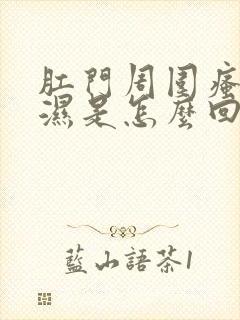 肛門周圍瘙
濕是怎麼回
藍山語茶1